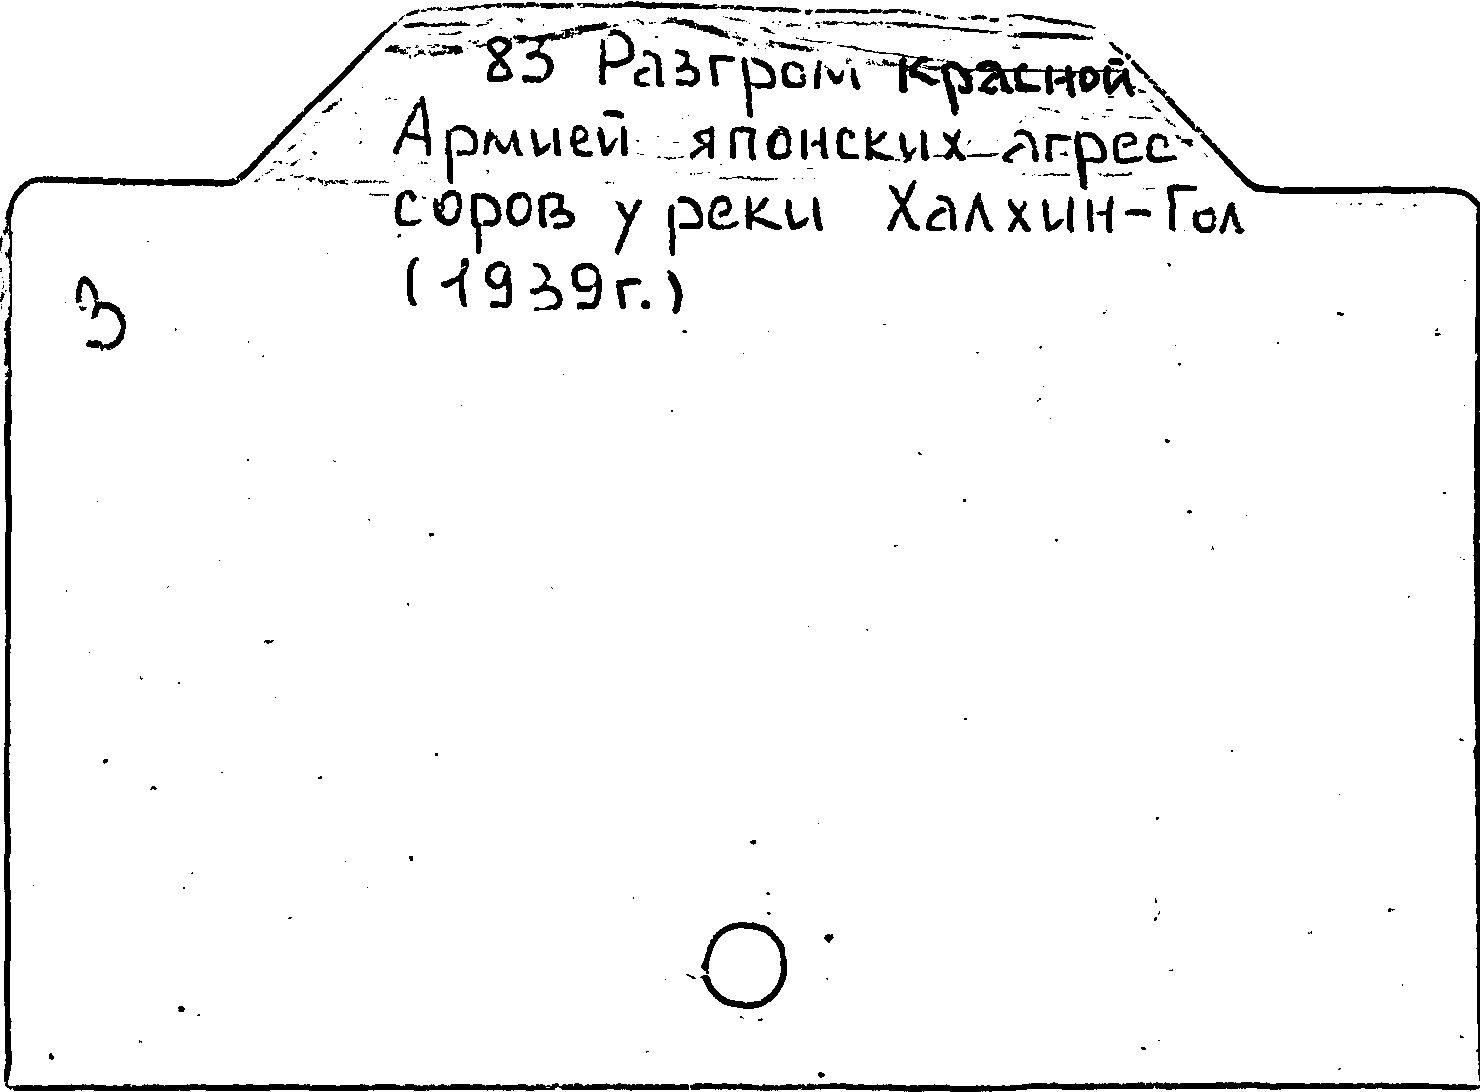 83 Разгром Красной
Армией японских агрес-
соров у реки Халхин-Гол
(1939г.)
3